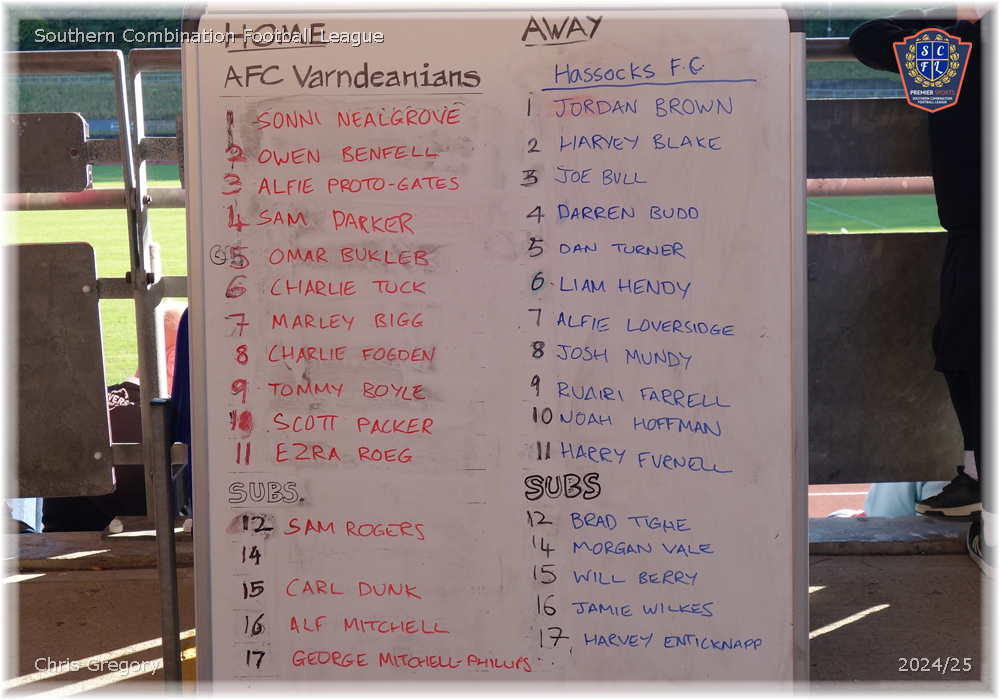 Southern Combination Football League
HOME
AFC Varndeanians
1 SONNI NEALGROVE
2 OWEN BENFELL
3 ALFIE PROTO-GATES
4 SAM PARKER
© 5 OMAR BUKLEB
6 CHARLIE TUCK
7 MARLEY BIGG
8 CHARLIE FOGDEN
9 TOMMY BOYLE
10 SCOTT PACKER
11 EZRA ROEG
SUBS.
12 SAM ROGERS
14
15 CARL DUNK
16 ALF MITCHELL
17 GEORGE MITCHELL-PHILLIPS
AWAY
Hassocks F.C.
1 JORDAN BROWN
2 HARVEY BLAKE
3 JOE BULL
4 DARREN BUDD
5 DAN TURNER
6 LIAM HENDY
7 ALFIE LOVERSIDGE
8 JOSH MUNDY
9 RUAIRI FARRELL
10 NOAH HOFFMAN
11 HARRY FURNELL
SUBS
12 BRAD TIGHE
14 MORGAN VALE
15 WILL BERRY
16 JAMIE WILKES
17 HARVEY ENTICKNAPP
S C
F L
PREMIER SPORTS
SOUTHERN COMBINATION
FOOTBALL LEAGUE
Chris Gregory
2024/25